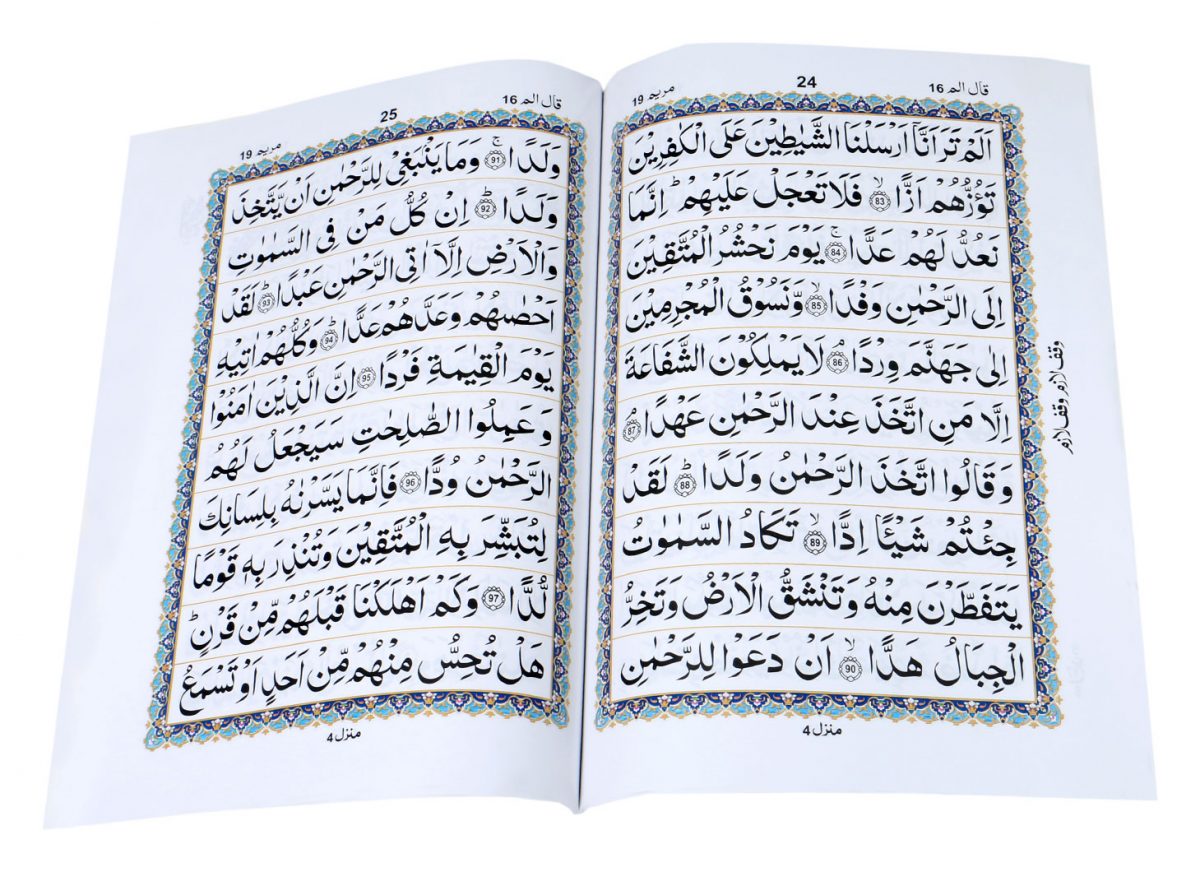 قال الم 16
24
مريم 19
اَلَمْ تَرَ اَنَّاۤ اَرْسَلْنَا الشَّيٰطِيْنَ عَلَى الْكٰفِرِيْنَ
تَؤُزُّهُمْ اَزًّا ۙ 83 فَلَا تَعْجَلْ عَلَيْهِمْ ؕ اِنَّمَا
نَعُدُّ لَهُمْ عَدًّا ۚ 84 يَوْمَ نَحْشُرُ الْمُتَّقِيْنَ
اِلَى الرَّحْمٰنِ وَفْدًا ۙ 85 وَّنَسُوْقُ الْمُجْرِمِيْنَ
اِلٰى جَهَنَّمَ وِرْدًا ۘ 86 لَا يَمْلِكُوْنَ الشَّفَاعَةَ
اِلَّا مَنِ اتَّخَذَ عِنْدَ الرَّحْمٰنِ عَهْدًا ۘ 87
وَقَالُوا اتَّخَذَ الرَّحْمٰنُ وَلَدًا ؕ 88 لَقَدْ
جِئْتُمْ شَيْـًٔا اِدًّا ۙ 89 تَكَادُ السَّمٰوٰتُ
يَتَفَطَّرْنَ مِنْهُ وَتَنْشَقُّ الْاَرْضُ وَتَخِرُّ
الْجِبَالُ هَدًّا ۙ 90 اَنْ دَعَوْا لِلرَّحْمٰنِ
وقف لازم وقف لازم
منزل 4
قال الم 16
25
مريم 19
وَلَدًا ۚ 91 وَمَا يَنْۢبَغِيْ لِلرَّحْمٰنِ اَنْ يَّتَّخِذَ
وَلَدًا ؕ 92 اِنْ كُلُّ مَنْ فِي السَّمٰوٰتِ
وَالْاَرْضِ اِلَّاۤ اٰتِي الرَّحْمٰنِ عَبْدًا ؕ 93 لَقَدْ
اَحْصٰىهُمْ وَعَدَّهُمْ عَدًّا ؕ 94 وَكُلُّهُمْ اٰتِيْهِ
يَوْمَ الْقِيٰمَةِ فَرْدًا 95 اِنَّ الَّذِيْنَ اٰمَنُوْا
وَعَمِلُوا الصّٰلِحٰتِ سَيَجْعَلُ لَهُمُ
الرَّحْمٰنُ وُدًّا 96 فَاِنَّمَا يَسَّرْنٰهُ بِلِسَانِكَ
لِتُبَشِّرَ بِهِ الْمُتَّقِيْنَ وَتُنْذِرَ بِهٖ قَوْمًا
لُّدًّا 97 وَكَمْ اَهْلَكْنَا قَبْلَهُمْ مِّنْ قَرْنٍ ؕ
هَلْ تُحِسُّ مِنْهُمْ مِّنْ اَحَدٍ اَوْ تَسْمَعُ
منزل 4